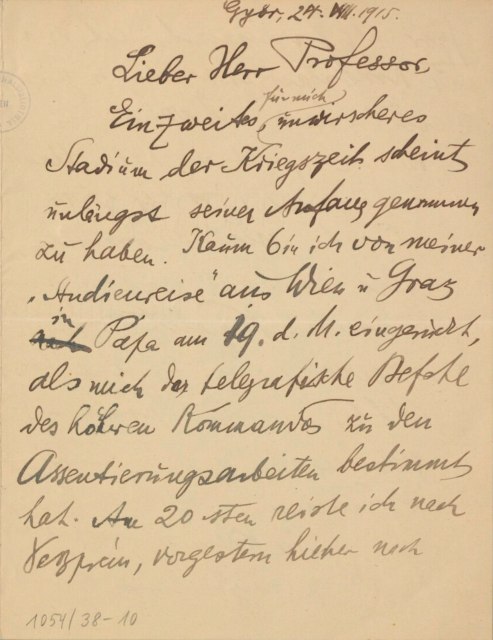 Győr, 24. VIII. 1915.
Lieber Herr Professor,
für mich
Ein zweites, unwirscheres
Stadium der Kriegszeit scheint
unlängst seinen Anfang genommen
zu haben. Kaum bin ich von meiner
„Studienreise“ aus Wien u Graz
in
Pápa am 19. d. M. eingerückt,
als mich der telegrafische Befehl
des höheren Kommandos zu den
Assentierungsarbeiten bestimmt
hat. Am 20-sten reiste ich nach
Veszprém, vorgestern hieher nach
1054/38-10